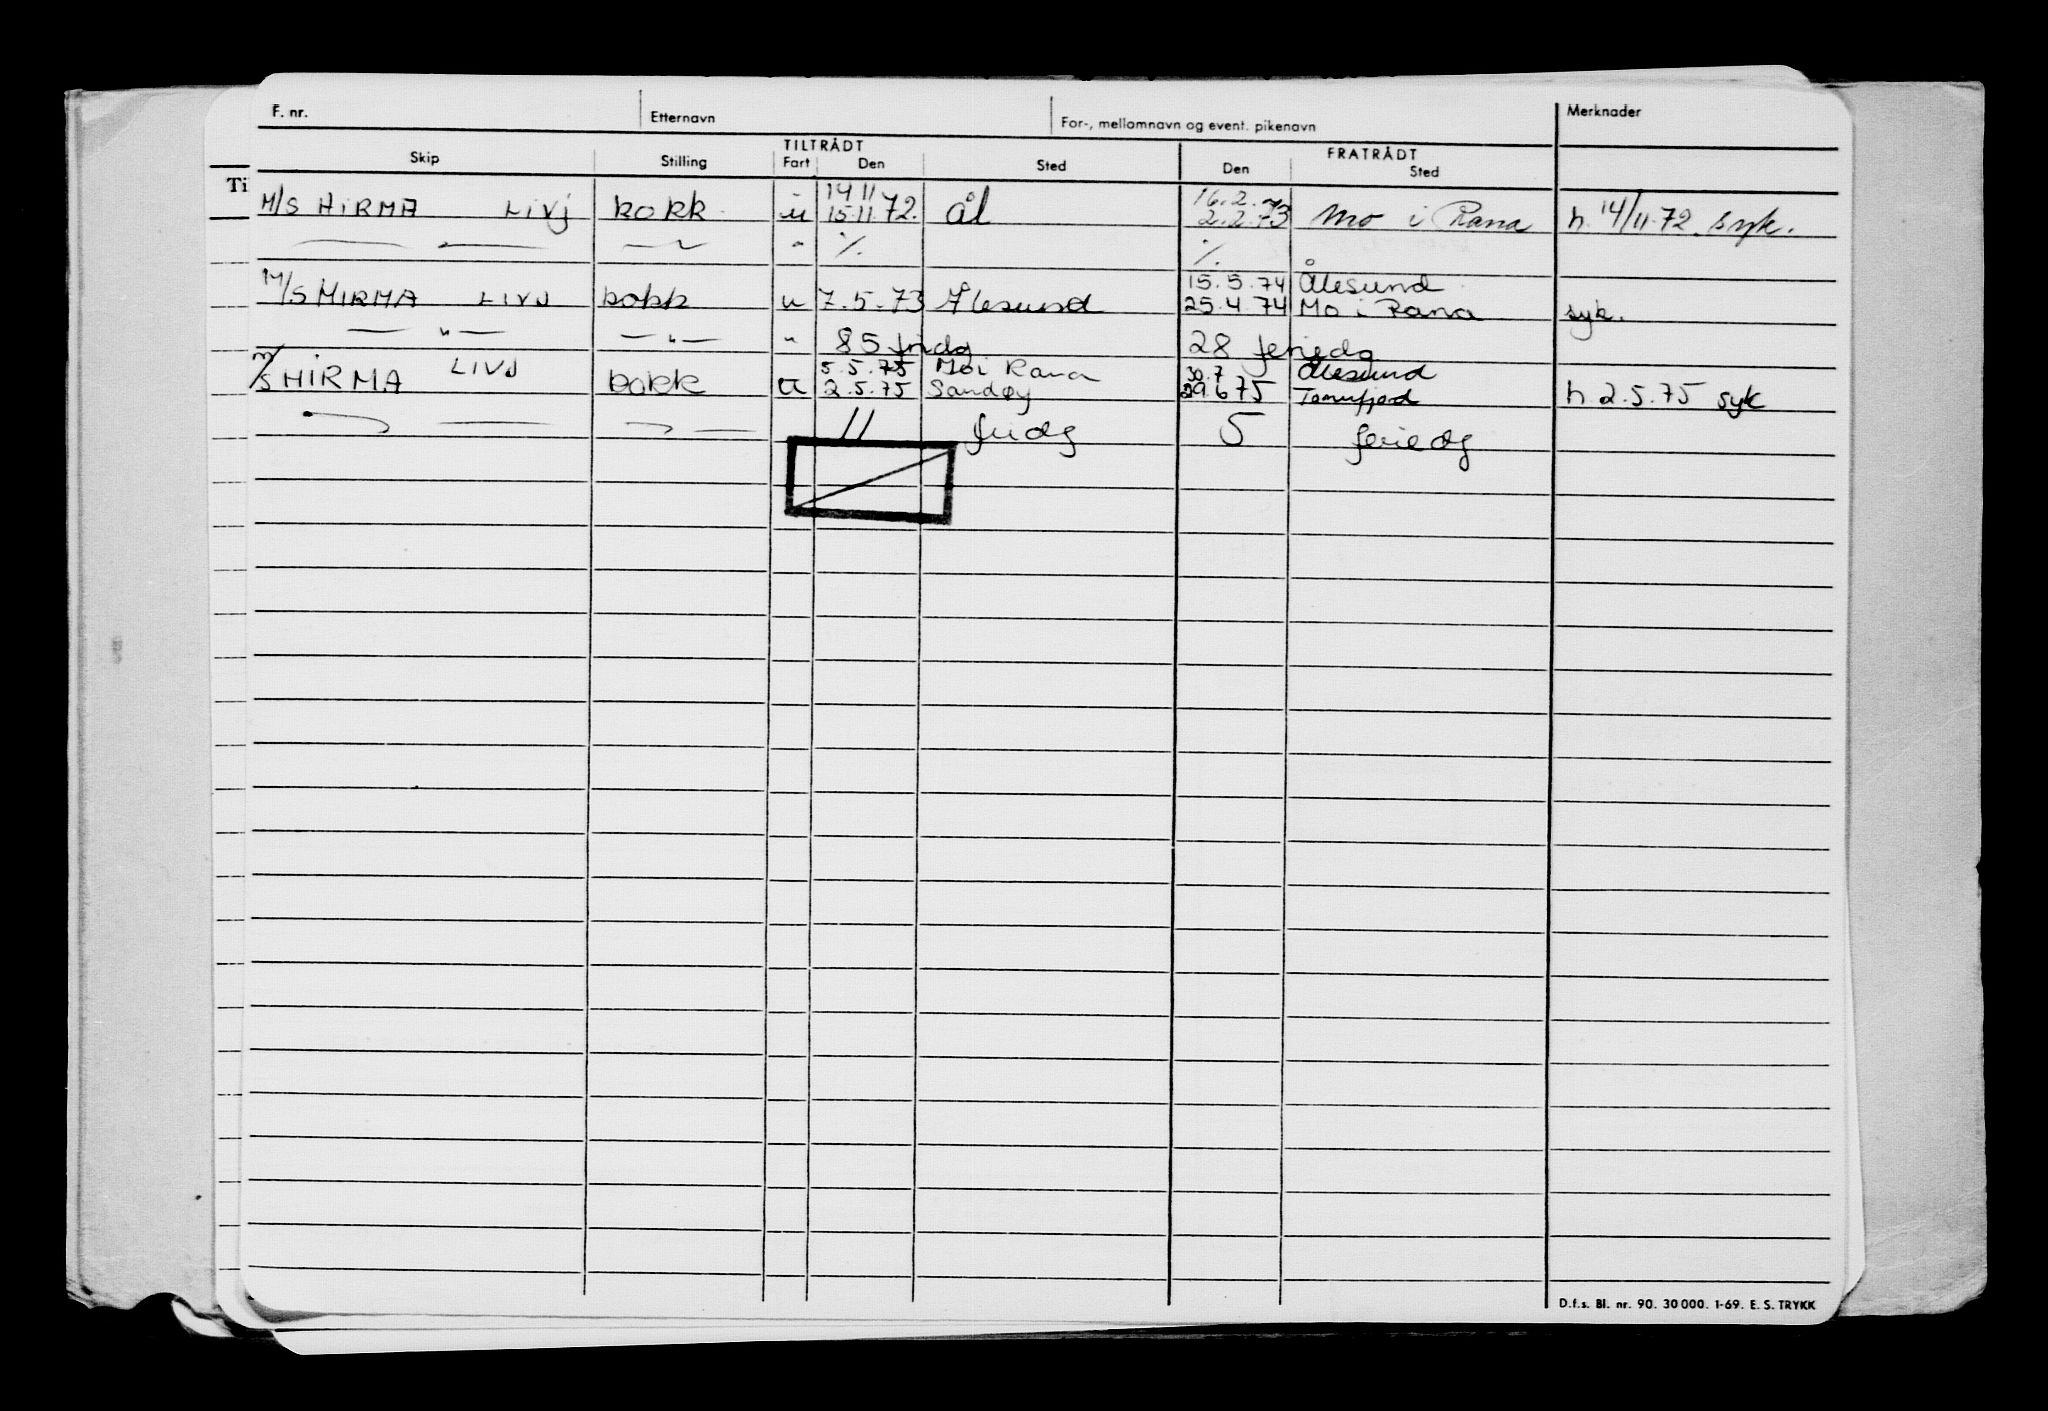 F. nr. Etternavn For-, mellomnavn og event. pikenavn Merknader
TILTRÅDT FRATRÅDT
Skip Stilling Fart Den Sted Den Sted
Ti
14 11 16.2.73
M/S HIRMA LIVJ kokk u 15.11.72. Ål 2.2.73 Mo i Rana h. 14/11.72. syk.
— " — — " — " % %
15.5.74 Ålesund
M/S HIRMA LIVJ kokk u 7.5.73 Ålesund 25.4.74 Mo i Rana syk.
— " — — " — " 85 fridg 28 feriedg
LIVJ 5.5.75 Mo i Rana 30.7 Ålesund
M/S HIRMA kokk u 2.5.75 Sandøy 29.6.75 h. 2.5.75 syk
11 fridg 5 feriedg
D.f.s. Bl. nr. 90. 30 000. 1-69. E. S. TRYKK